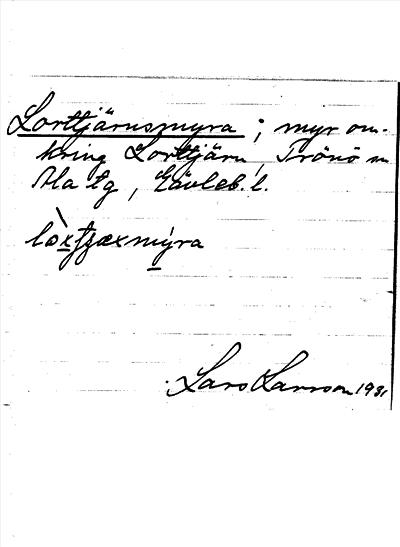 Lorttjärnsmyra; myr om-
kring Lorttjärn, Trönö sn
Ala tg, Gävleb. l.
Lars Larsson 1931